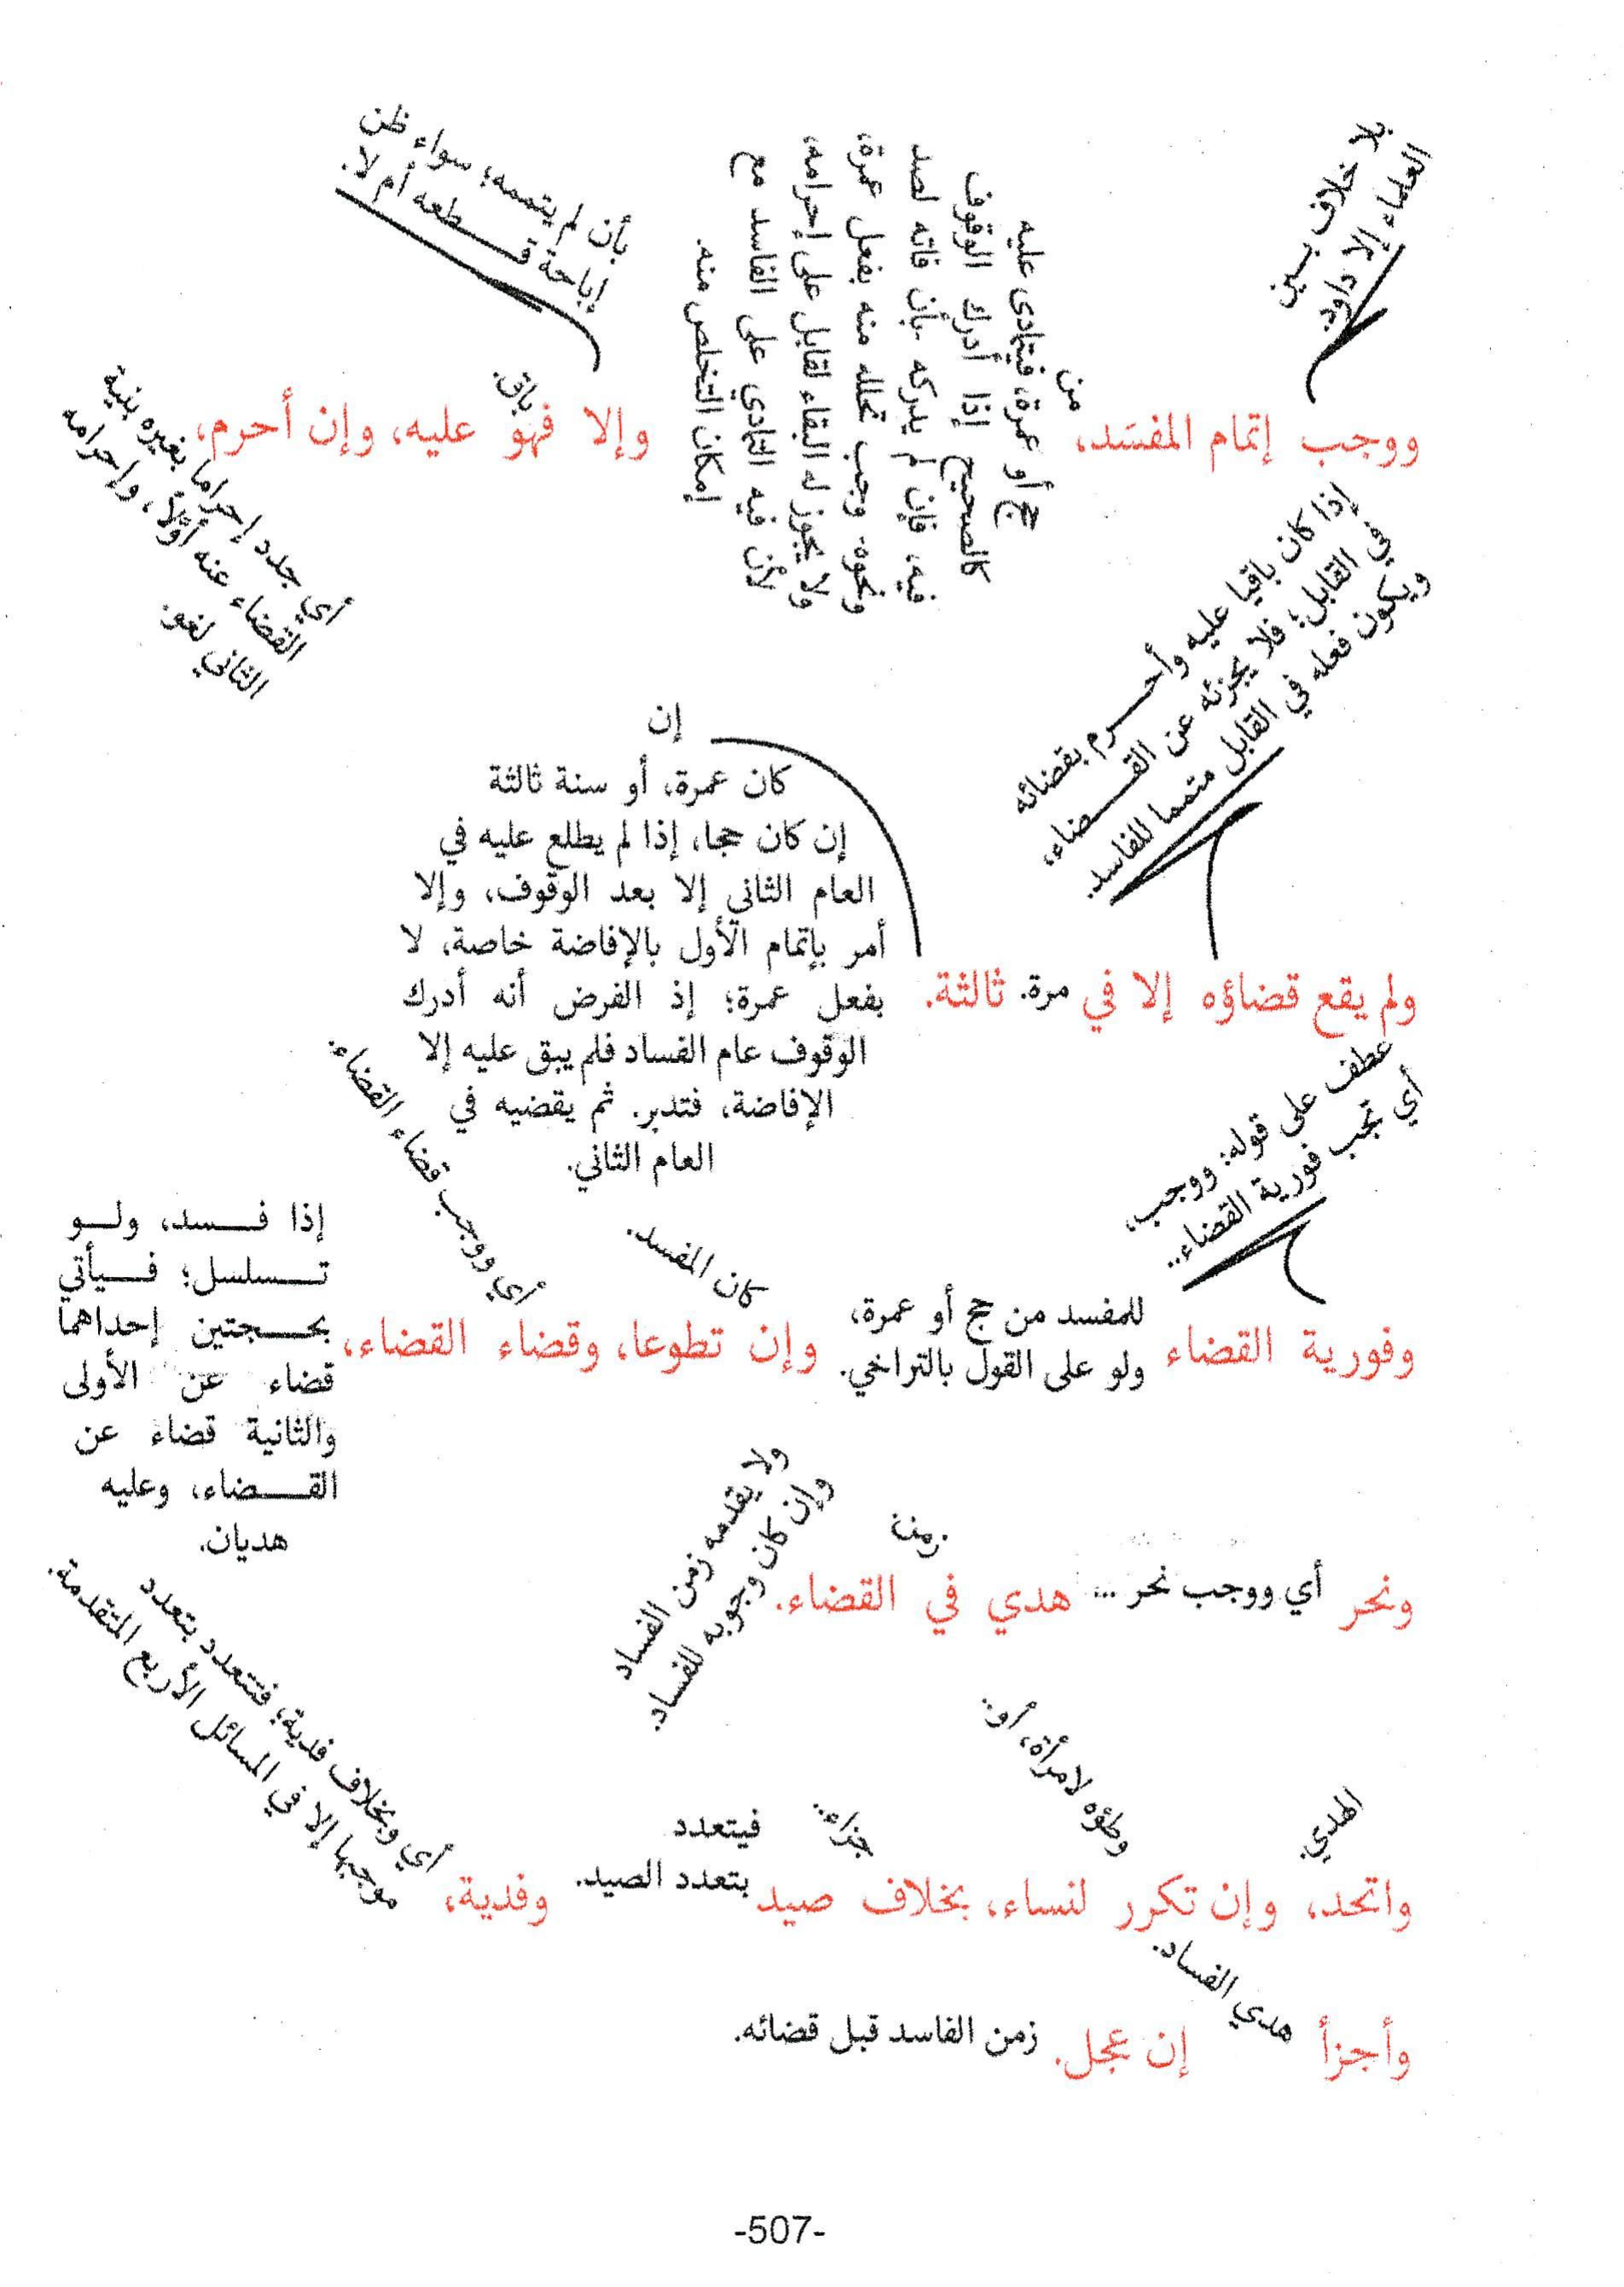 بلا خلاف بين
العلماء إلا داود.
ووجب إتمام المفسَد،
من
حج أو عمرة، فيتمادى عليه
كالصحيح إذا أدرك الوقوف
فيه، فإن لم يدركه بأن فاته لصد
ونحوه وجب تحلله منه بفعل عمرة،
ولا يجوز له البقاء لقابل على إحرامه،
لأن فيه التمادي على الفاسد مع
إمكان التخلص منه.
وإلا
بأن لم يتمه؛ سواء ظن
إباحة قـطعه أم لا.
فهو
باق.
عليه، وإن أحرم،
أي جدد إحراما بغيره بنية
القضاء عنه أوّلاً، وإحرامه
الثاني لغو.
إذا كان باقيا عليه وأحـرم بقضائه
في القابل؛ فلا يجزئه عن القـضاء،
ويكون فعله في القابل متمما للفاسد.
ولم يقع قضاؤه إلا في مرة. ثالثة.
إن
كان عمرة، أو سنة ثالثة
إن كان حجا، إذا لم يطلع عليه في
العام الثاني إلا بعد الوقوف، وإلا
أمر بإتمام الأول بالإفاضة خاصة، لا
بفعل عمرة؛ إذ الفرض أنه أدرك
الوقوف عام الفساد فلم يبق عليه إلا
الإفاضة، فتدبر. ثم يقضيه في
العام الثاني.
عطف على قوله: ووجب،
أي تجب فورية القضاء..
وفورية القضاء
للمفسد من حج أو عمرة،
ولو على القول بالتراخي.
وإن تطوعا، وقضاء القضاء،
كان المفسد.
أي ووجب قضاء القضاء.
إذا فـسد، ولـو
تـسلسل؛ فـيأتي
بحـجتين إحداهما
قضاء عن الأولى
والثانية قضاء عن
القـضاء، وعليه
هديان.
ونحر أي ووجب نحر ... هدي في القضاء.
زمن.
ولا يقدمه زمن الفساد
وإن كان وجوبه للفساد.
الهدي.
واتحد، وإن تكرر لنساء، بخلاف صيد
وطؤه لامرأة، أو..
جزاء..
فيتعدد
بتعدد الصيد.
وفدية،
أي وبخلاف فدية؛ فتتعدد بتعدد
موجبها إلا في المسائل الأربع المتقدمة.
وأجزأ
هدي الفساد.
إن عجل. زمن الفاسد قبل قضائه.
-507-